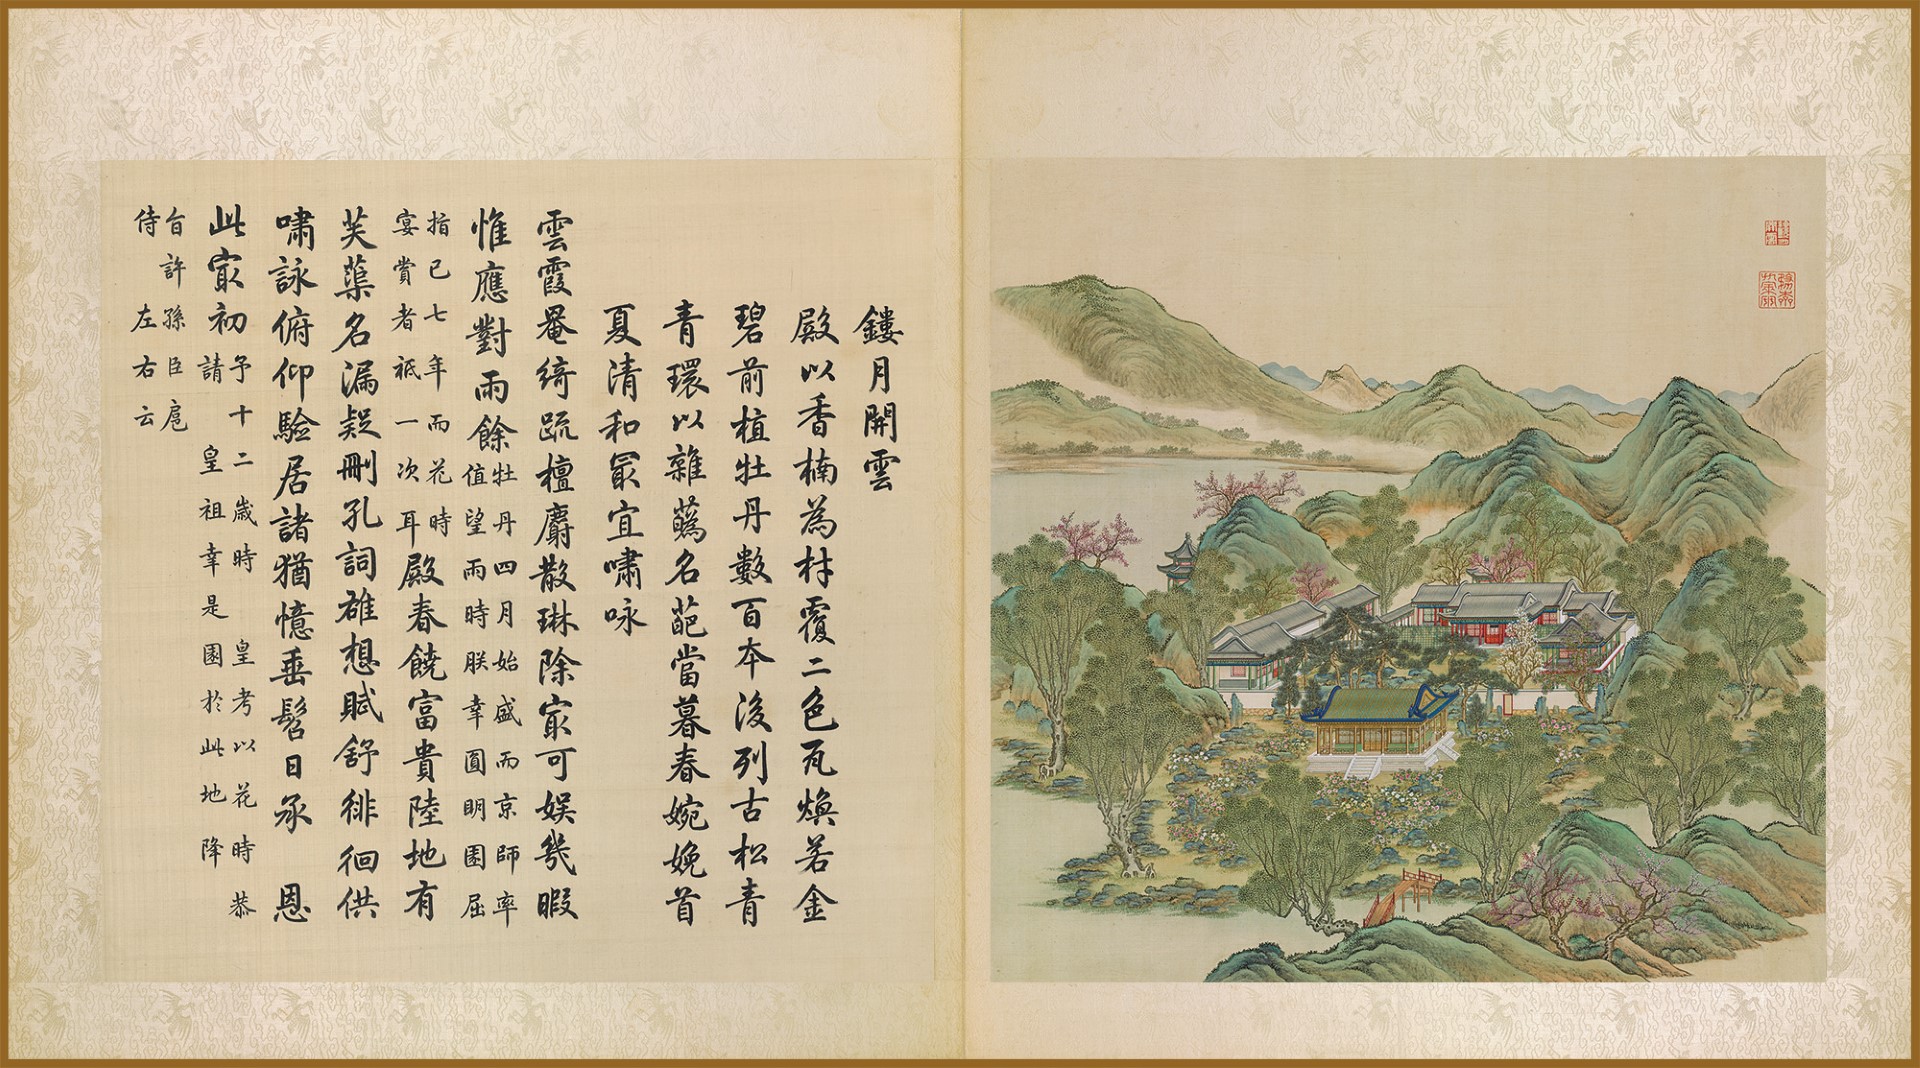 鏤月開雲
殿以香楠為材覆二色瓦煥若金
碧前植牡丹數百本後列古松青
青環以雜蘤名葩當暮春婉娩首
夏清和㝡宜嘯咏
雲霞罨綺疏檀麝散琳除㝡可娛幾暇
惟應對雨餘
牡丹四月始盛而京師率
值望雨時朕幸圓明園屈
指已七年而花時
宴賞者祗一次耳
殿春饒富貴陸地有
芙蕖名漏疑刪孔詞雄想賦舒徘徊供
嘯詠俯仰驗居諸猶憶垂髫日承 恩
此㝡初
予十二歲時 皇考以花時恭
請 皇祖幸是園於此地降
旨許孫臣扈
侍 左右云